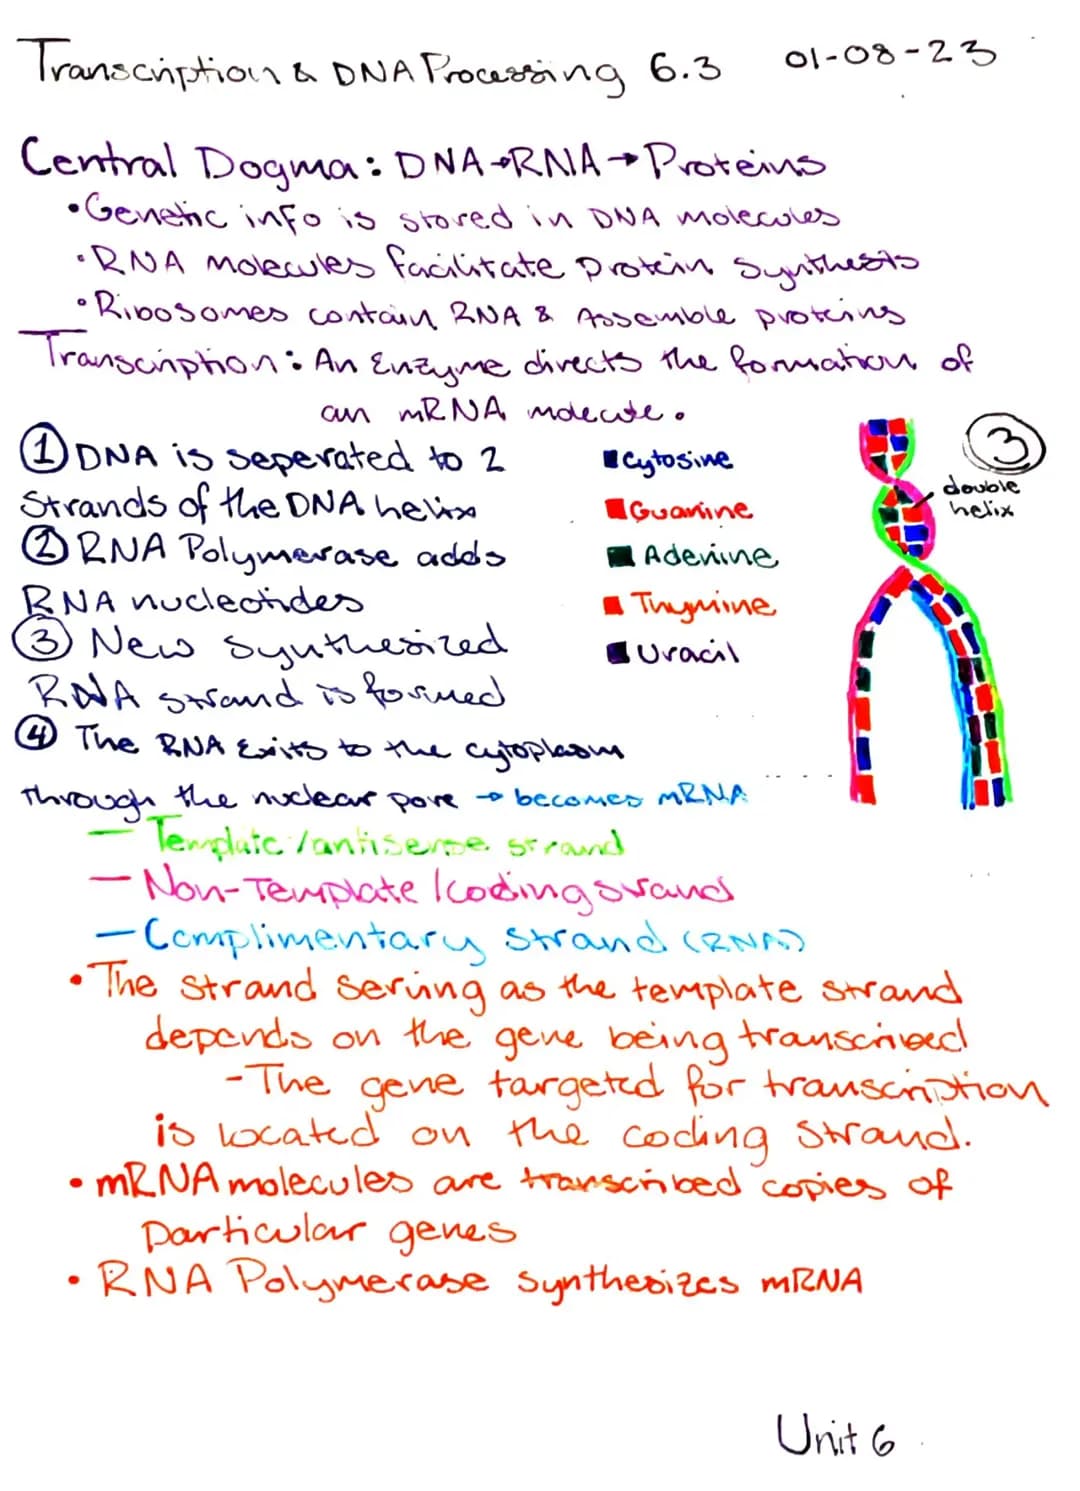 Transcription & DNA Processing 6.3 01-08-23
Central Dogma: DNA→RNA→Proteins
•Genetic info is stored in DNA molecules
•RNA molecules facilitate protein synthesis
•Ribosomes contain RNA & Assemble proteins
Transcription: An Enzyme directs the formation of
an mRNA molecule.
① DNA is seperated to 2
Strands of the DNA helix
② RNA Polymerase adds
RNA nucleotides
③ New Synthesized
RNA strand is formed
④ The RNA Exits to the cytoplasm
through the nuclear pore → becomes mRNA
Cytosine
Guanine
Adenine
Thymine
Uracil
③
double
helix
— Template/antisense strand
— Non-Template/coding strand
— Complimentary Strand (RNA)
• The strand serving as the template strand
depends on the gene being transcribed
-The gene targeted for transcription
is located on the coding strand.
• mRNA molecules are transcribed copies of
particular genes
• RNA Polymerase synthesizes mRNA
Unit 6